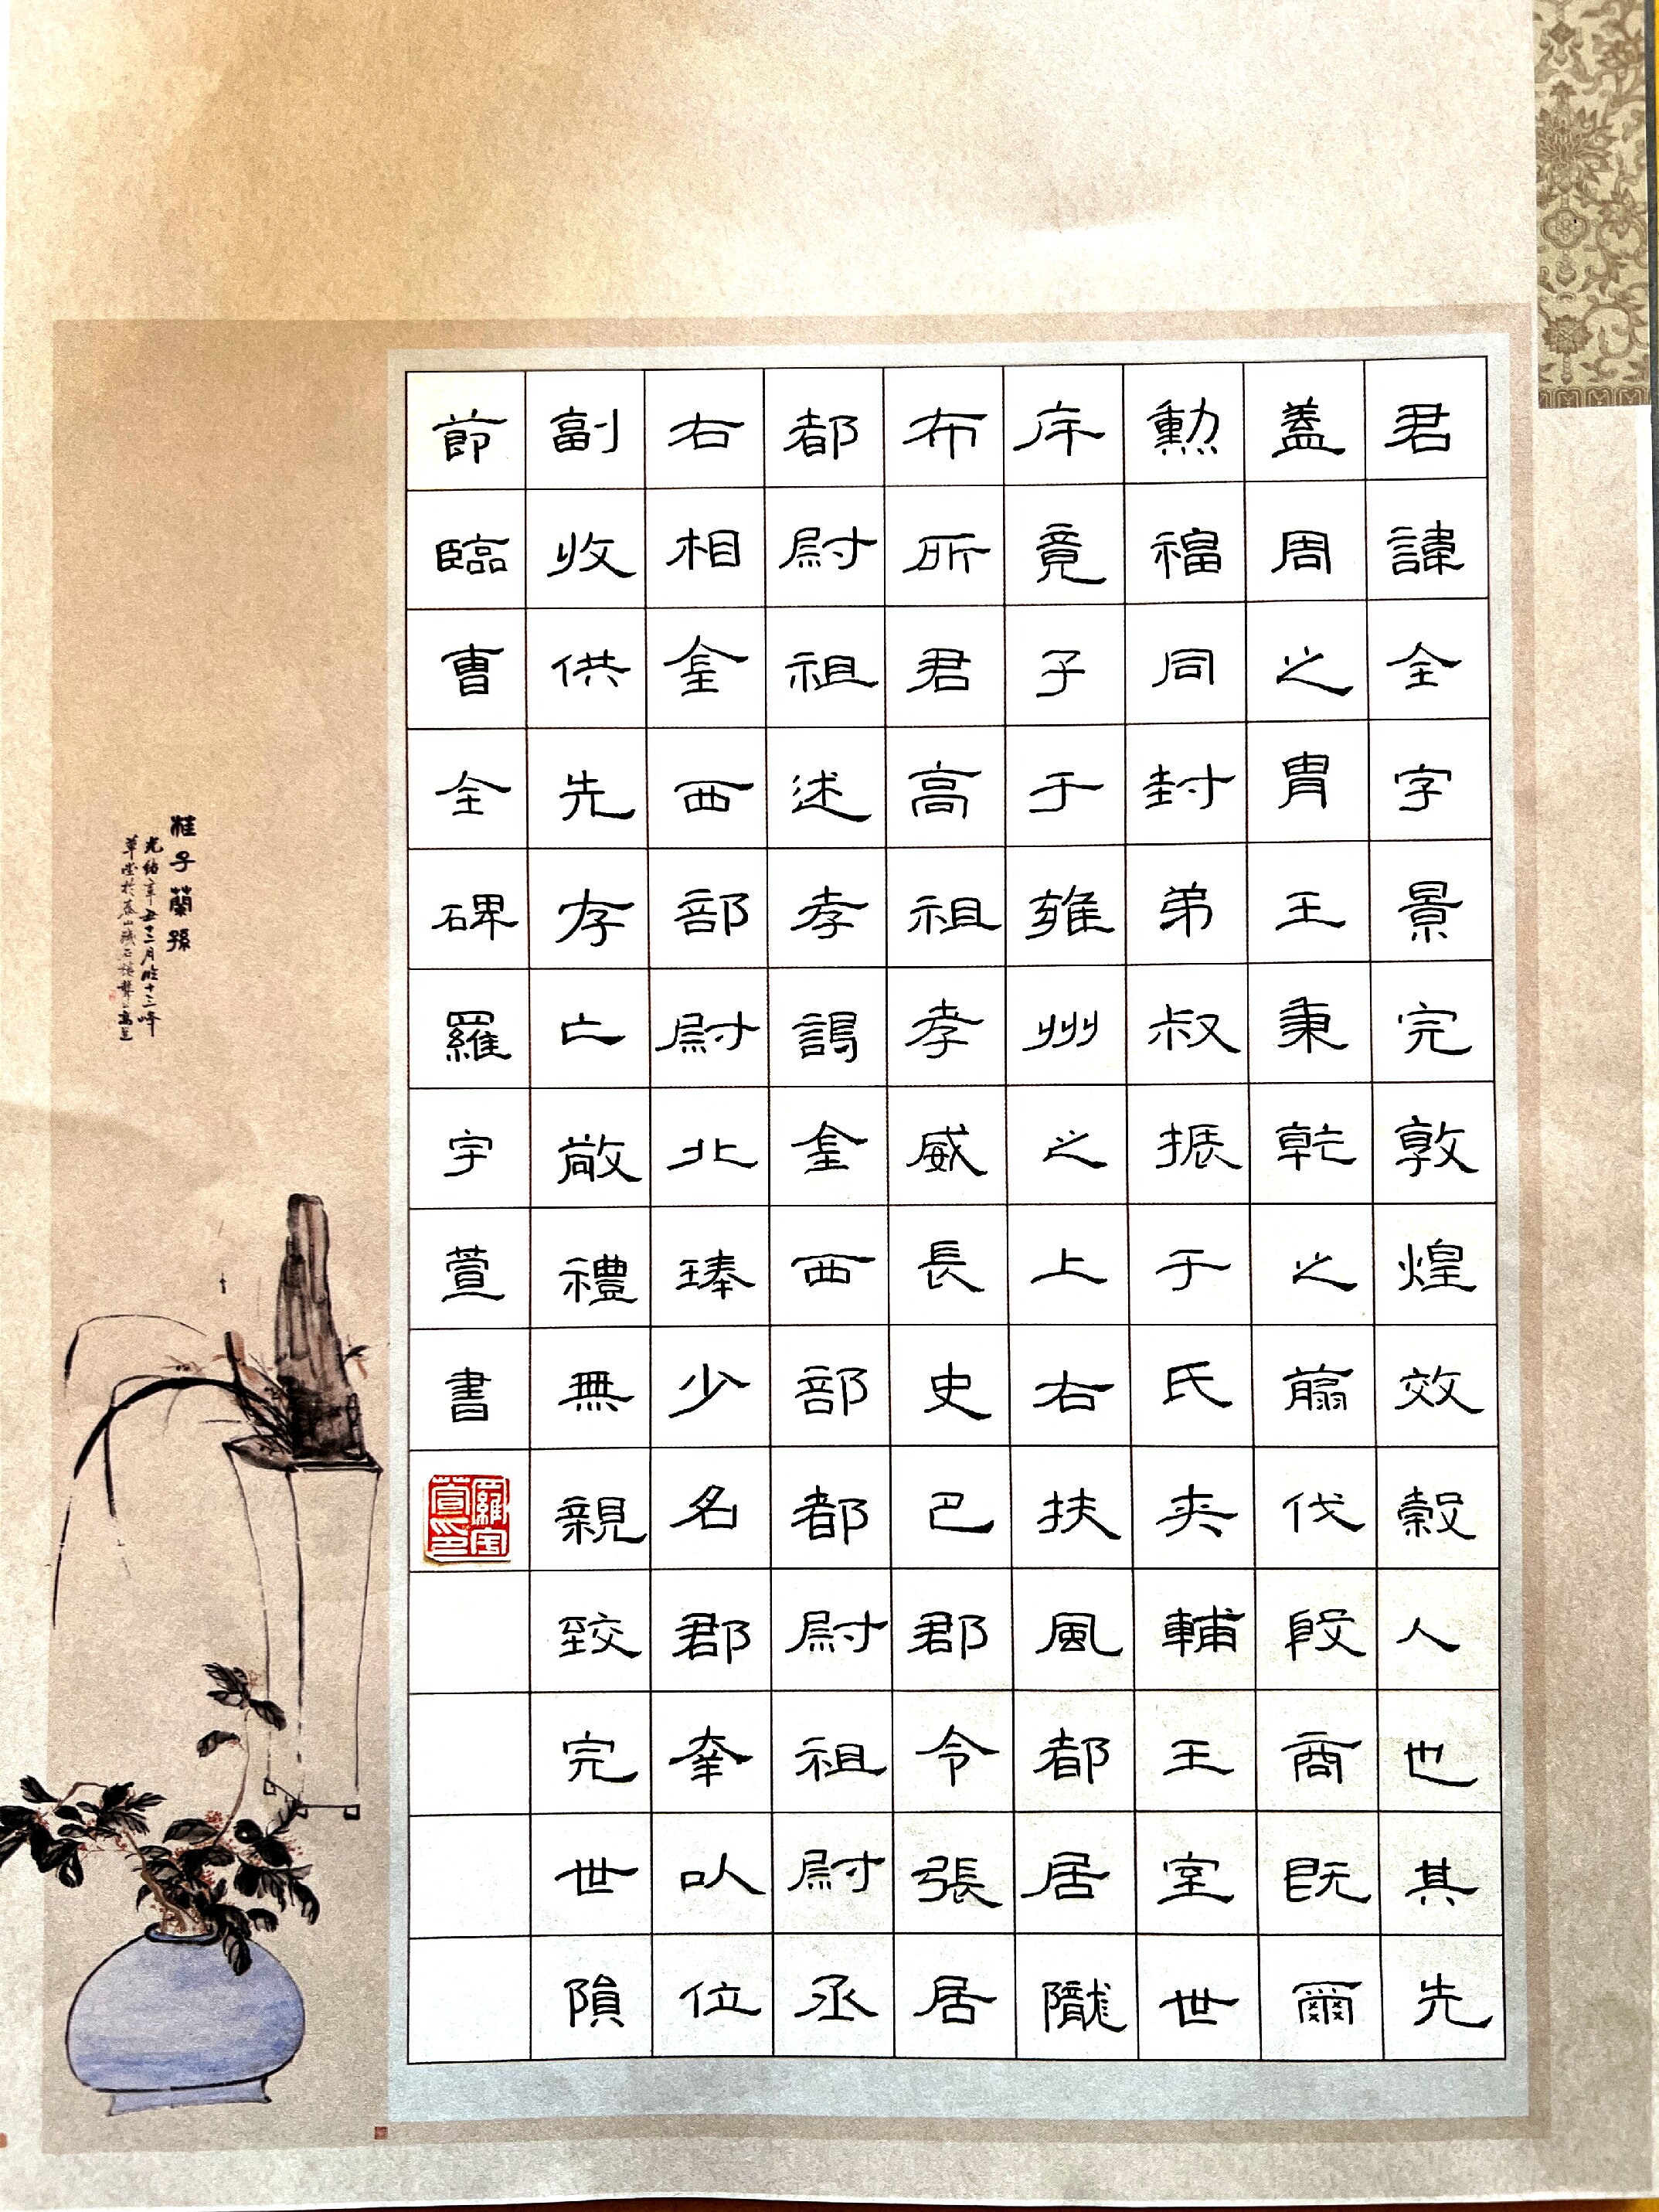 君諱全字景完敦煌效穀人也其先
蓋周之胄王秉乾之翦伐殷商既爾
勳福同封弟叔振于氏夾輔王室世
序竟子于雍州之上右扶風都居隴
布所君高祖孝威長史巴郡令張居
都尉祖述孝謁金西部都尉祖尉丞
右相金西部尉北琫少名郡幸以位
副收供先存亡敬禮無親致完世隕
節臨曹全碑羅宇萱書
羅宇萱印
桂子蘭孫
光緒辛丑十二月臨十三峰
草堂於